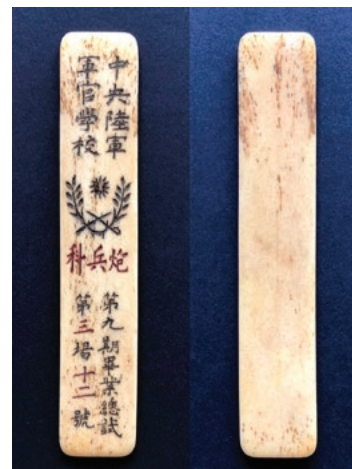 中央陸軍
軍官學校
科兵炮
第九期畢業總試
第三場十二號